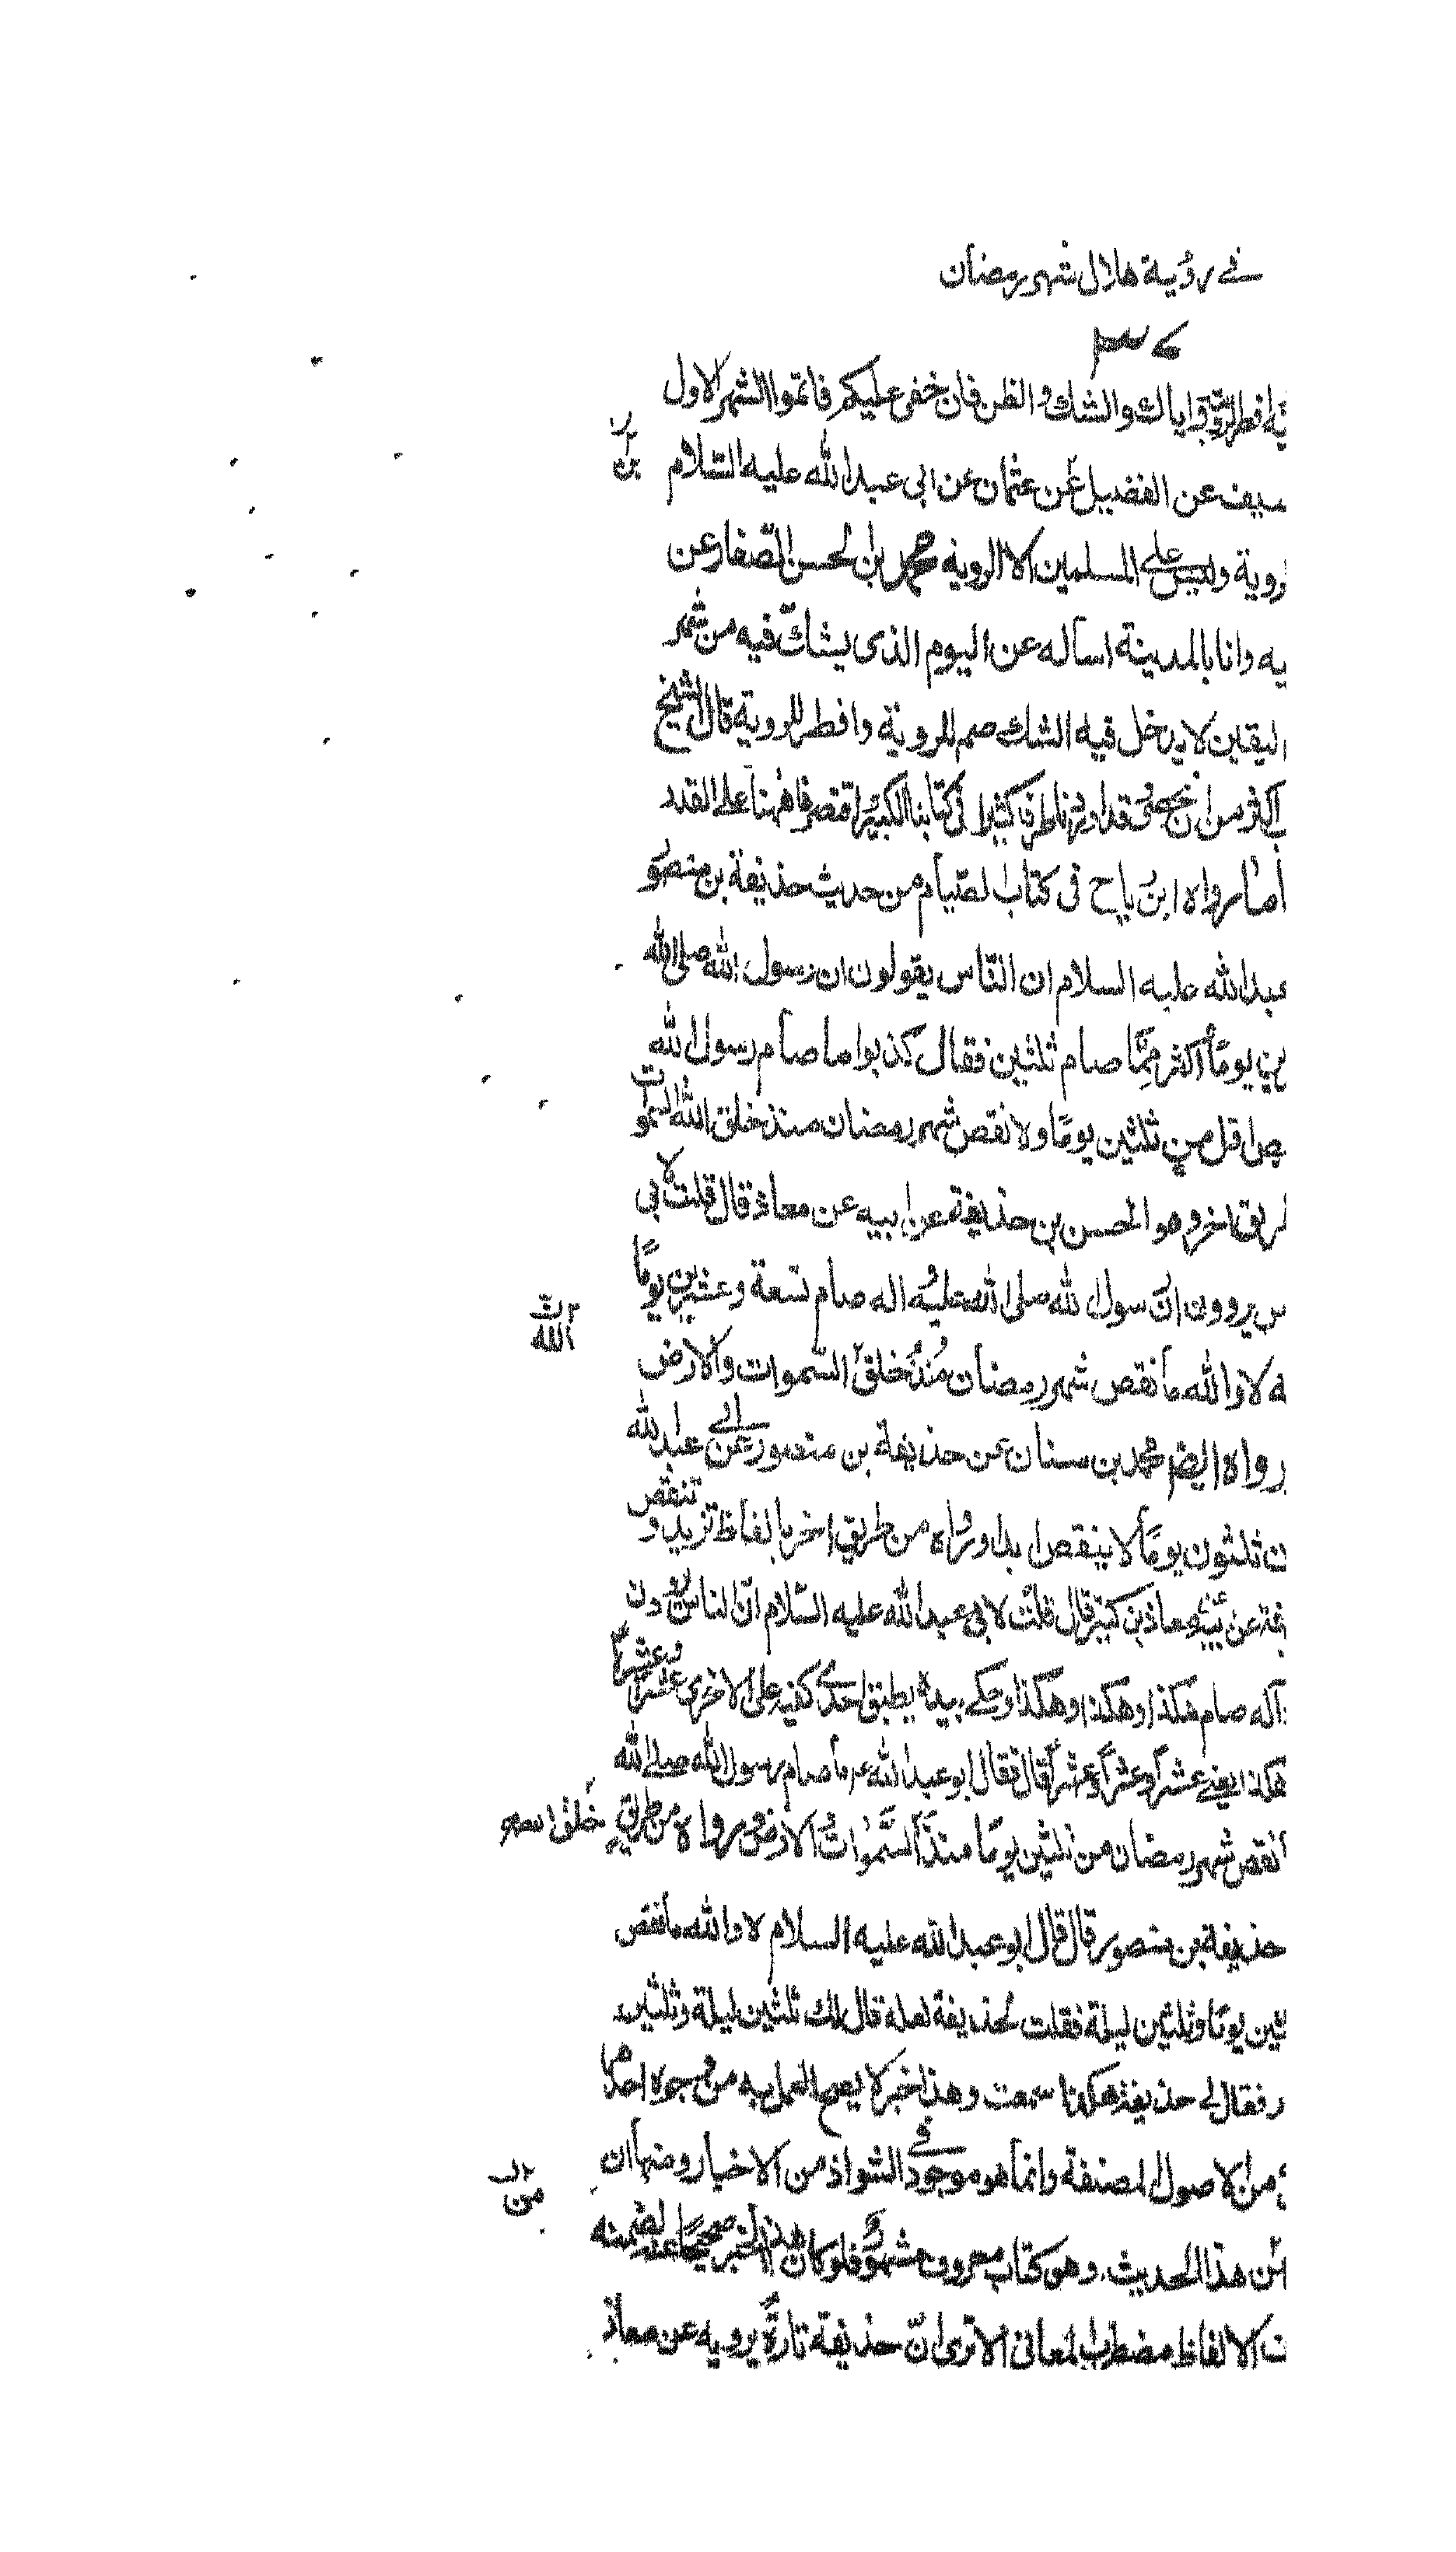 في رؤية هلال شهر رمضان
افطر لرؤيته واياك والشك والظن فان خفى عليكم فاتموا الشهر الاول
سيف عن الفضيل عن عثمان عن ابى عبد الله عليه السلام
روية وليس على المسلمين الا الروية محمد بن الحسن الصفار عن
يه وانا بالمدينة اساله عن اليوم الذى يشك فيه من شهر
اليقين لا يدخل فيه الشك صم للروية وافطر للروية قال الشيخ
اكثر من ان تحصى وقد اوردنا طرفا كثيرا فى كتابنا الكبير اقتصر فاههنا على القدر
اما رواه ابن رياح فى كتاب الصيام من حديث حذيفة بن منصور
عبد الله عليه السلام ان الناس يقولون ان رسول الله صلى الله
ين يومًا اكثر ممّا صام ثلثين فقال كذبوا ما صام رسول الله
اقل من ثلثين يومًا ولا نقص شهر رمضان منذ خلق الله السموات
طريق اخر وهو الحسن بن حذيفة عن ابيه عن معاذ قال قلت لابى
س يروون ان رسول لله صلى الله عليه واله صام تسعة وعشرين يومًا
ه لا والله ما نقص شهر رمضان مُنذ خلق السّموات والارض
الله
رواه ايضم محمد بن سنان عن حذيفة بن منصور عن ابي عبد الله
ن ثلثون يومًا لا ينقص ابدا ورواه من طريق اخر بالفاظ تزيد وتنقص
عن ابيه معاذ بن كثير قال قلت لابى عبد الله عليه السّلام انّ الناس يروون
آله صام هكذا وهكذا وهكذا وحكى بيده يطبق احدى كفيه على الاخرى عشرا وعشرًا
هكذا يعنى عشرًا وعشرًا وعشرًا قال فقال ابو عبد الله عم ما صام رسول الله صلى الله
نقص شهر رمضان من ثلثين يومًا منذ السّموات والارض ورواه من طريق
خلق الله
حذيفة بن منصور قال قال ابو عبد الله عليه السلام لا والله ما نقص
ثين يومًا وثلثين ليلة فقلت لحذيفة لعله قال لك ثلثين ليلة وثلثين
فقال لى حذيفة هكذا سمعت وهذا الخبر لا يصح العمل به من وجوه احدها
من الاصول المصنفة وانما هو موجود في الشواذ من الاخبار ومنها ان
من
من هذا الحديث وهو كتاب معروف مشهور فلو كان هذا الخبر صحيحًا عنه لضمنه
ت الالفاظ مضطرب المعانى الا ترى انّ حذيفة تارةً يرويه عن معاذ